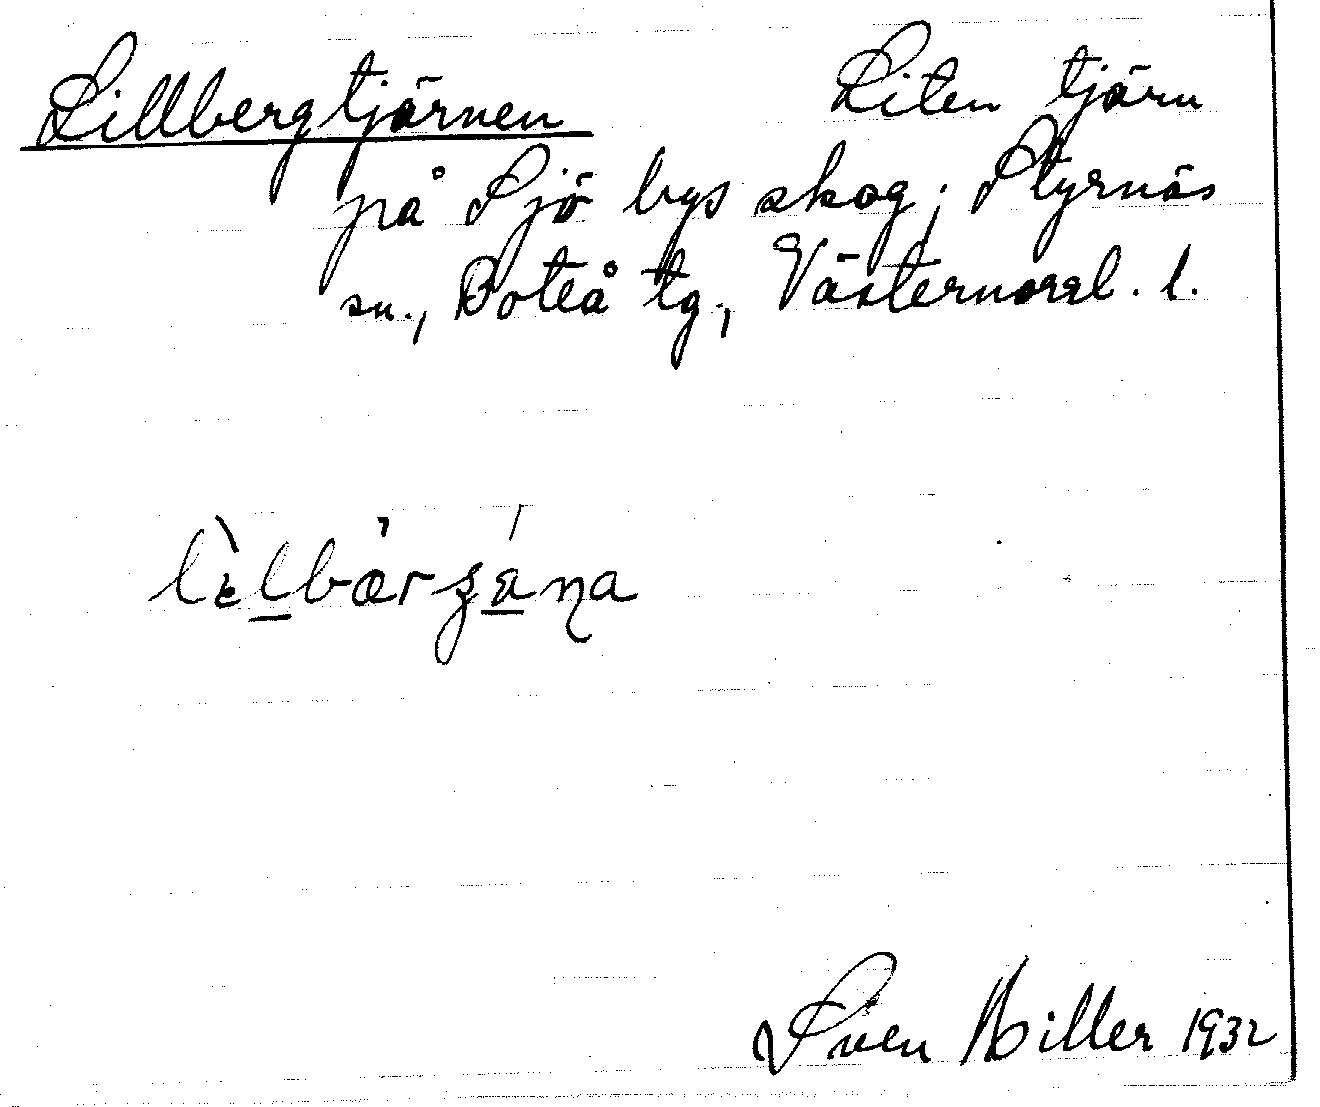 Lillbergtjärnen Liten tjärn
på Sjö bys skog; Styrnäs
sn., Boteå tg, Västernorrl. l.
Sven 1932